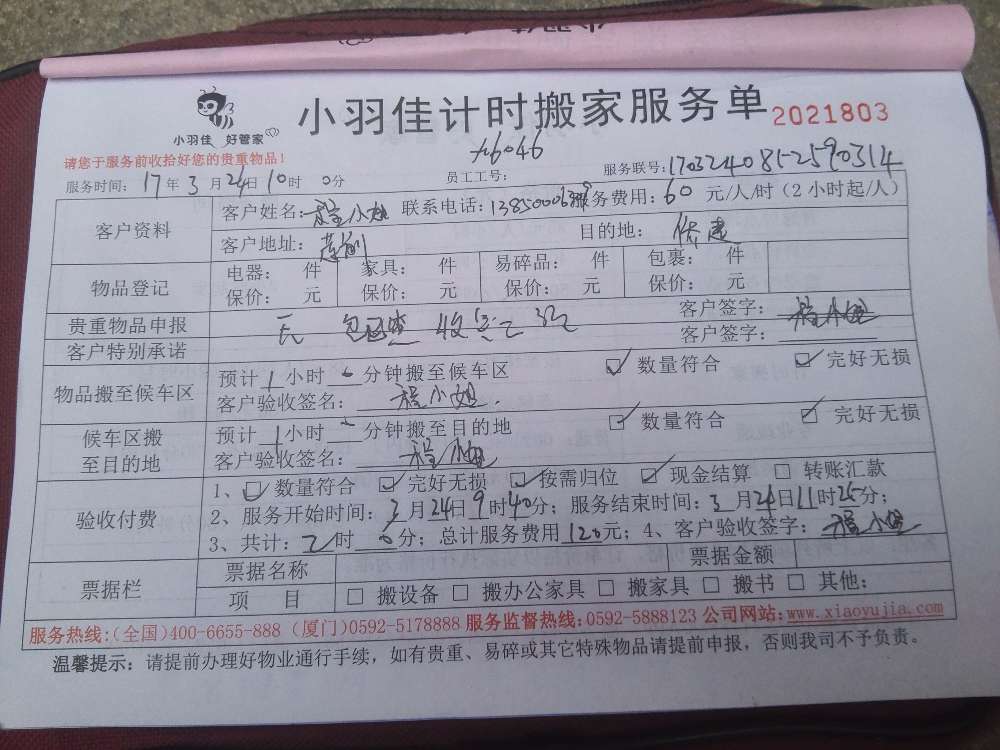 小羽佳 好管家
小羽佳计时搬家服务单 2021803
请您于服务前收拾好您的贵重物品!
服务时间: 17年3月24日10时0分 员工工号: 服务联号:
客户资料 客户姓名:程小姐 联系电话: 服务费用:60元/人/时(2小时起/人)
客户地址:莲前 目的地:
物品登记 电器: 件 家具: 件 易碎品: 件 包裹: 件
保价: 元 保价: 元 保价: 元 保价: 元
贵重物品申报 无 客户签字:程小姐
客户特别承诺 客户签字:
物品搬至候车区 预计1小时0分钟搬至候车区 ☑数量符合 ☑完好无损
客户验收签名:程小姐
候车区搬至目的地 预计1小时0分钟搬至目的地 ☑数量符合 ☑完好无损
客户验收签名:程小姐
验收付费 1、☑数量符合 ☑完好无损 ☑按需归位 ☑现金结算 □转账汇款
2、服务开始时间:3月24日9时40分;服务结束时间:3月24日11时25分;
3、共计:2时0分;总计服务费用120元;4、客户验收签字:程小姐
票据栏 票据名称 票据金额
项 目 □搬设备 □搬办公家具 □搬家具 □搬书 □其他:
服务热线:(全国)400-6655-888 (厦门)0592-5178888 服务监督热线:0592-5888123 公司网站:www.xiaoyujia.com
温馨提示:请提前办理好物业通行手续,如有贵重、易碎或其它特殊物品请提前申报,否则我司不予负责。